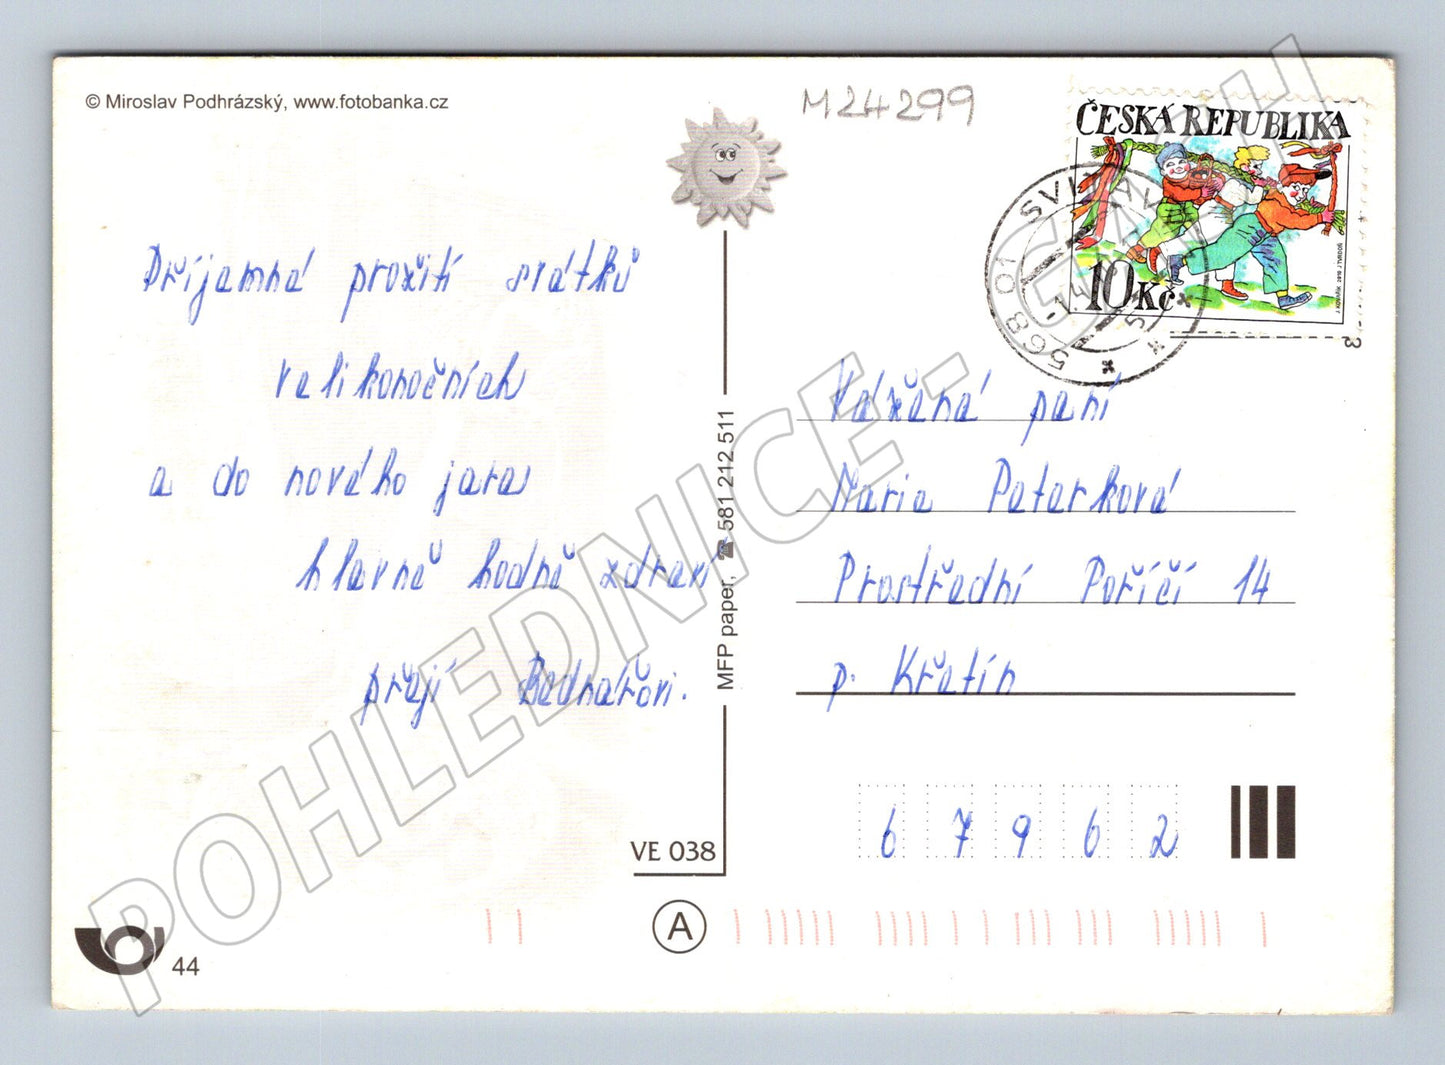 © Miroslav Podhrázský, www.fotobanka.cz
M24299
ČESKÁ REPUBLIKA
10Kč
J. KOVAŘÍK 2010 J. TVRDOŇ
568 01 SVITAVY
Příjemné prožití svátků
velikonočních
a do nového jara
hlavně hodně zdraví
přejí Bednářovi.
MFP paper, ☎ 581 212 511
VE 038
Vážená paní
Marie Peterková
Prostřední Poříčí 14
p. Křetín
67962
A
44
POHLEDNICE -